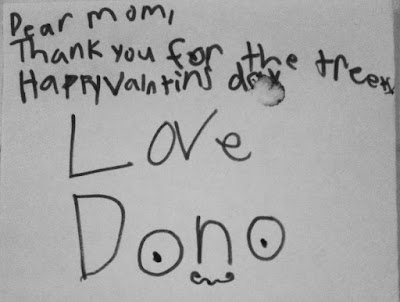 Dear mom,
Thank you for the treets
Happy Valntins day
Love
Dono